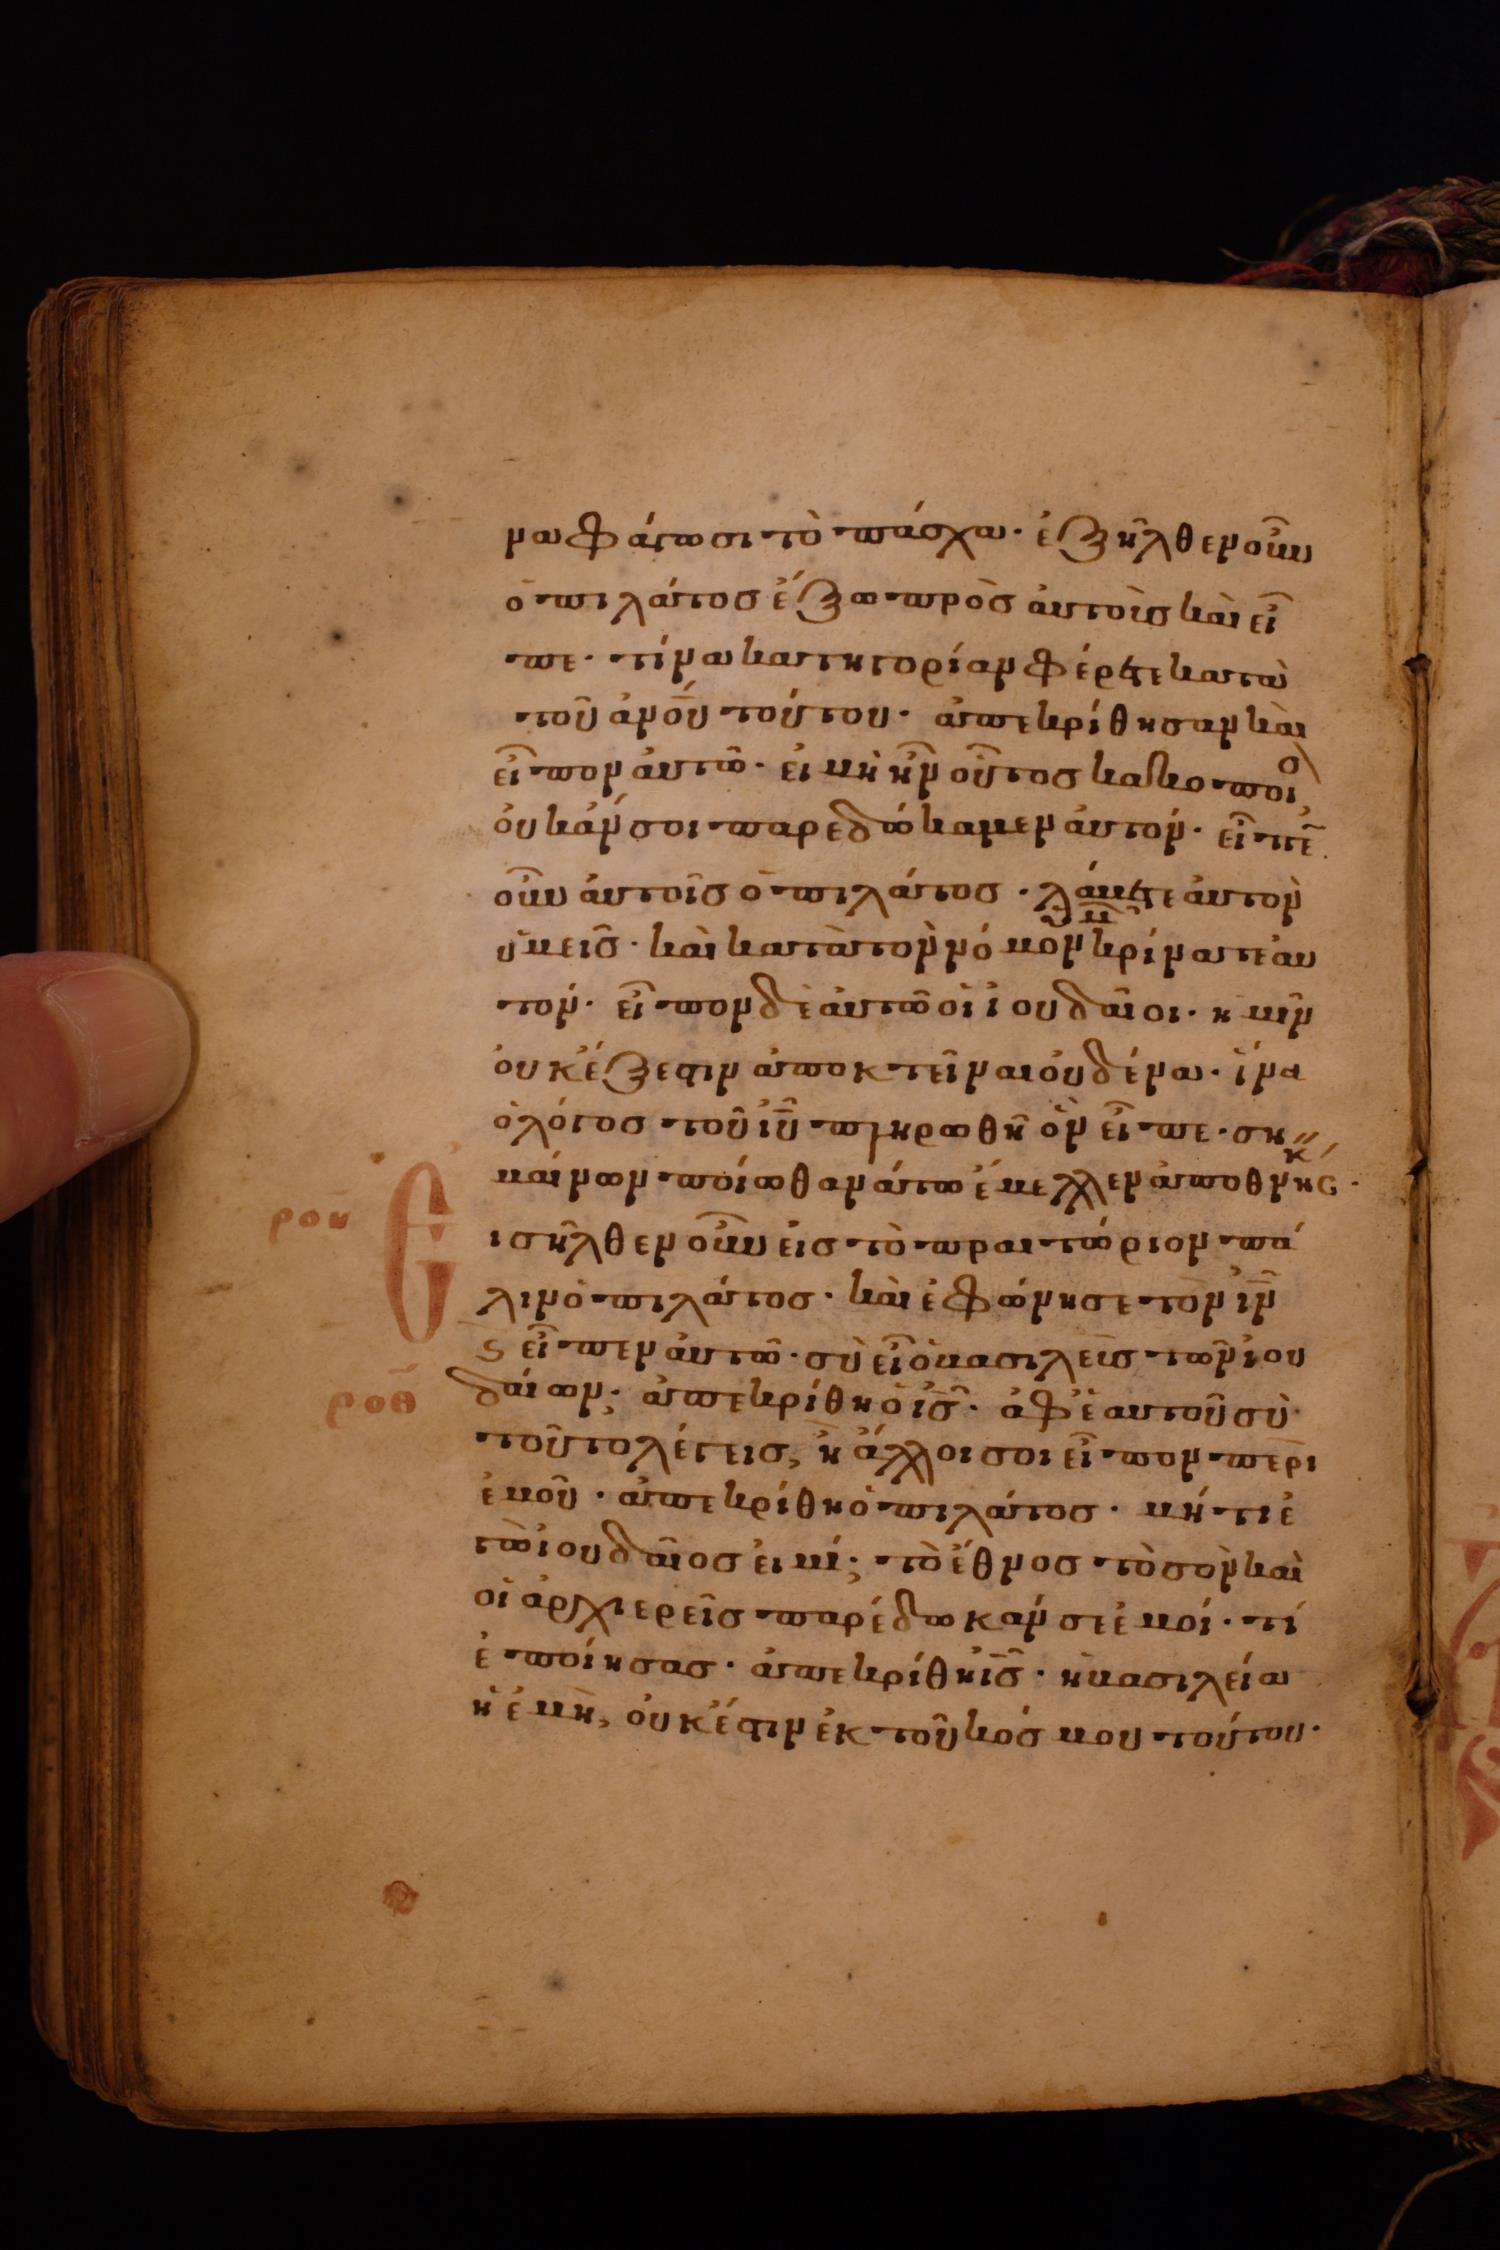 να φάγωσι τὸ πάσχα· ἐξῆλθεν οὖν
ὁ πιλάτος ἔξω πρὸς αὐτοὺς καὶ εἶ
πε· τίνα κατηγορίαν φέρετε κατὰ
τοῦ ἀνοῦ τούτου· ἀπεκρίθησαν καὶ
εἶπον αὐτῶ· εἰ μὴ ἦν οὗτος κακοποιὸ
οὐκ ἄν σοι παρεδώκαμεν αὐτόν· εἶπε
οὖν αὐτοῖς ὁ πιλάτος· λάβετε αὐτὸν
ὑμεῖς· καὶ κατὰ τὸν νόμον ὑμ κρίνατε αὐ
τόν· εἶπον δὲ αὐτῶ οἱ ἰουδαῖοι· ἡμῖν
οὐκ ἔξεστιν ἀποκτεῖναι οὐδένα· ἵνα
ὁ λόγος τοῦ ἰῦ πληρωθῆ ὃν εἶπε· ση
μαίνων ποίω θανάτω ἔμελλεν ἀποθνήσκ
ροη Ε
ισῆλθεν οὖν εἰς τὸ πραιτώριον πά
λιν ὁ πιλάτος· καὶ ἐφώνησε τὸν ἰν
ϛ εἶπεν αὐτῶ· σὺ εἶ ὁ βασιλεὺς τῶν ἰου
ροθ
δαίων; ἀπεκρίθη ὁ ἰς· ἀφ' ἑαυτοῦ σὺ
τοῦτο λέγεις, ἢ ἄλλοι σοι εἶπον περὶ
ἐμοῦ· ἀπεκρίθη ὁ πιλάτος· μήτι ἐ
γὼ ἰουδαῖος εἰμί; τὸ ἔθνος τὸ σὸν καὶ
οἱ ἀρχιερεῖς παρέδωκάν σε ἐμοί· τί
ἐποίησας· ἀπεκρίθη ἰς· ἡ βασιλεία
ἡ ἐμὴ, οὐκ ἔστιν ἐκ τοῦ κόσμου τούτου·